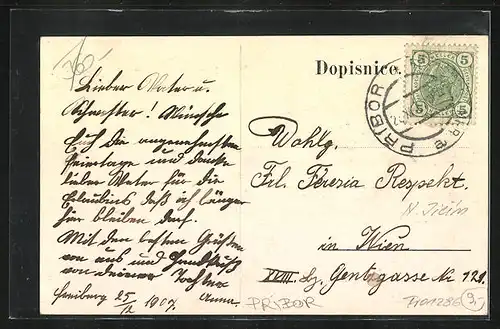 Dopisnice.
5 5
5 5
PŘIBOR
Lieber Vater u.
Schwester! Wünsche
Euch die angenehmsten
Feiertage und danke
lieber Vater für die
Erlaubnis daß ich länger
hier bleiben darf.
Mit den besten Grüßen
von uns und Handkuß
von deiner Tochter
Freiberg 25/12 1907. Anna.
Wohlg.
Frl. Teresia Respekt.
in Wien
XVIII. Bz. Gentzgasse Nr 129.
N. Jičín
PRIBOR